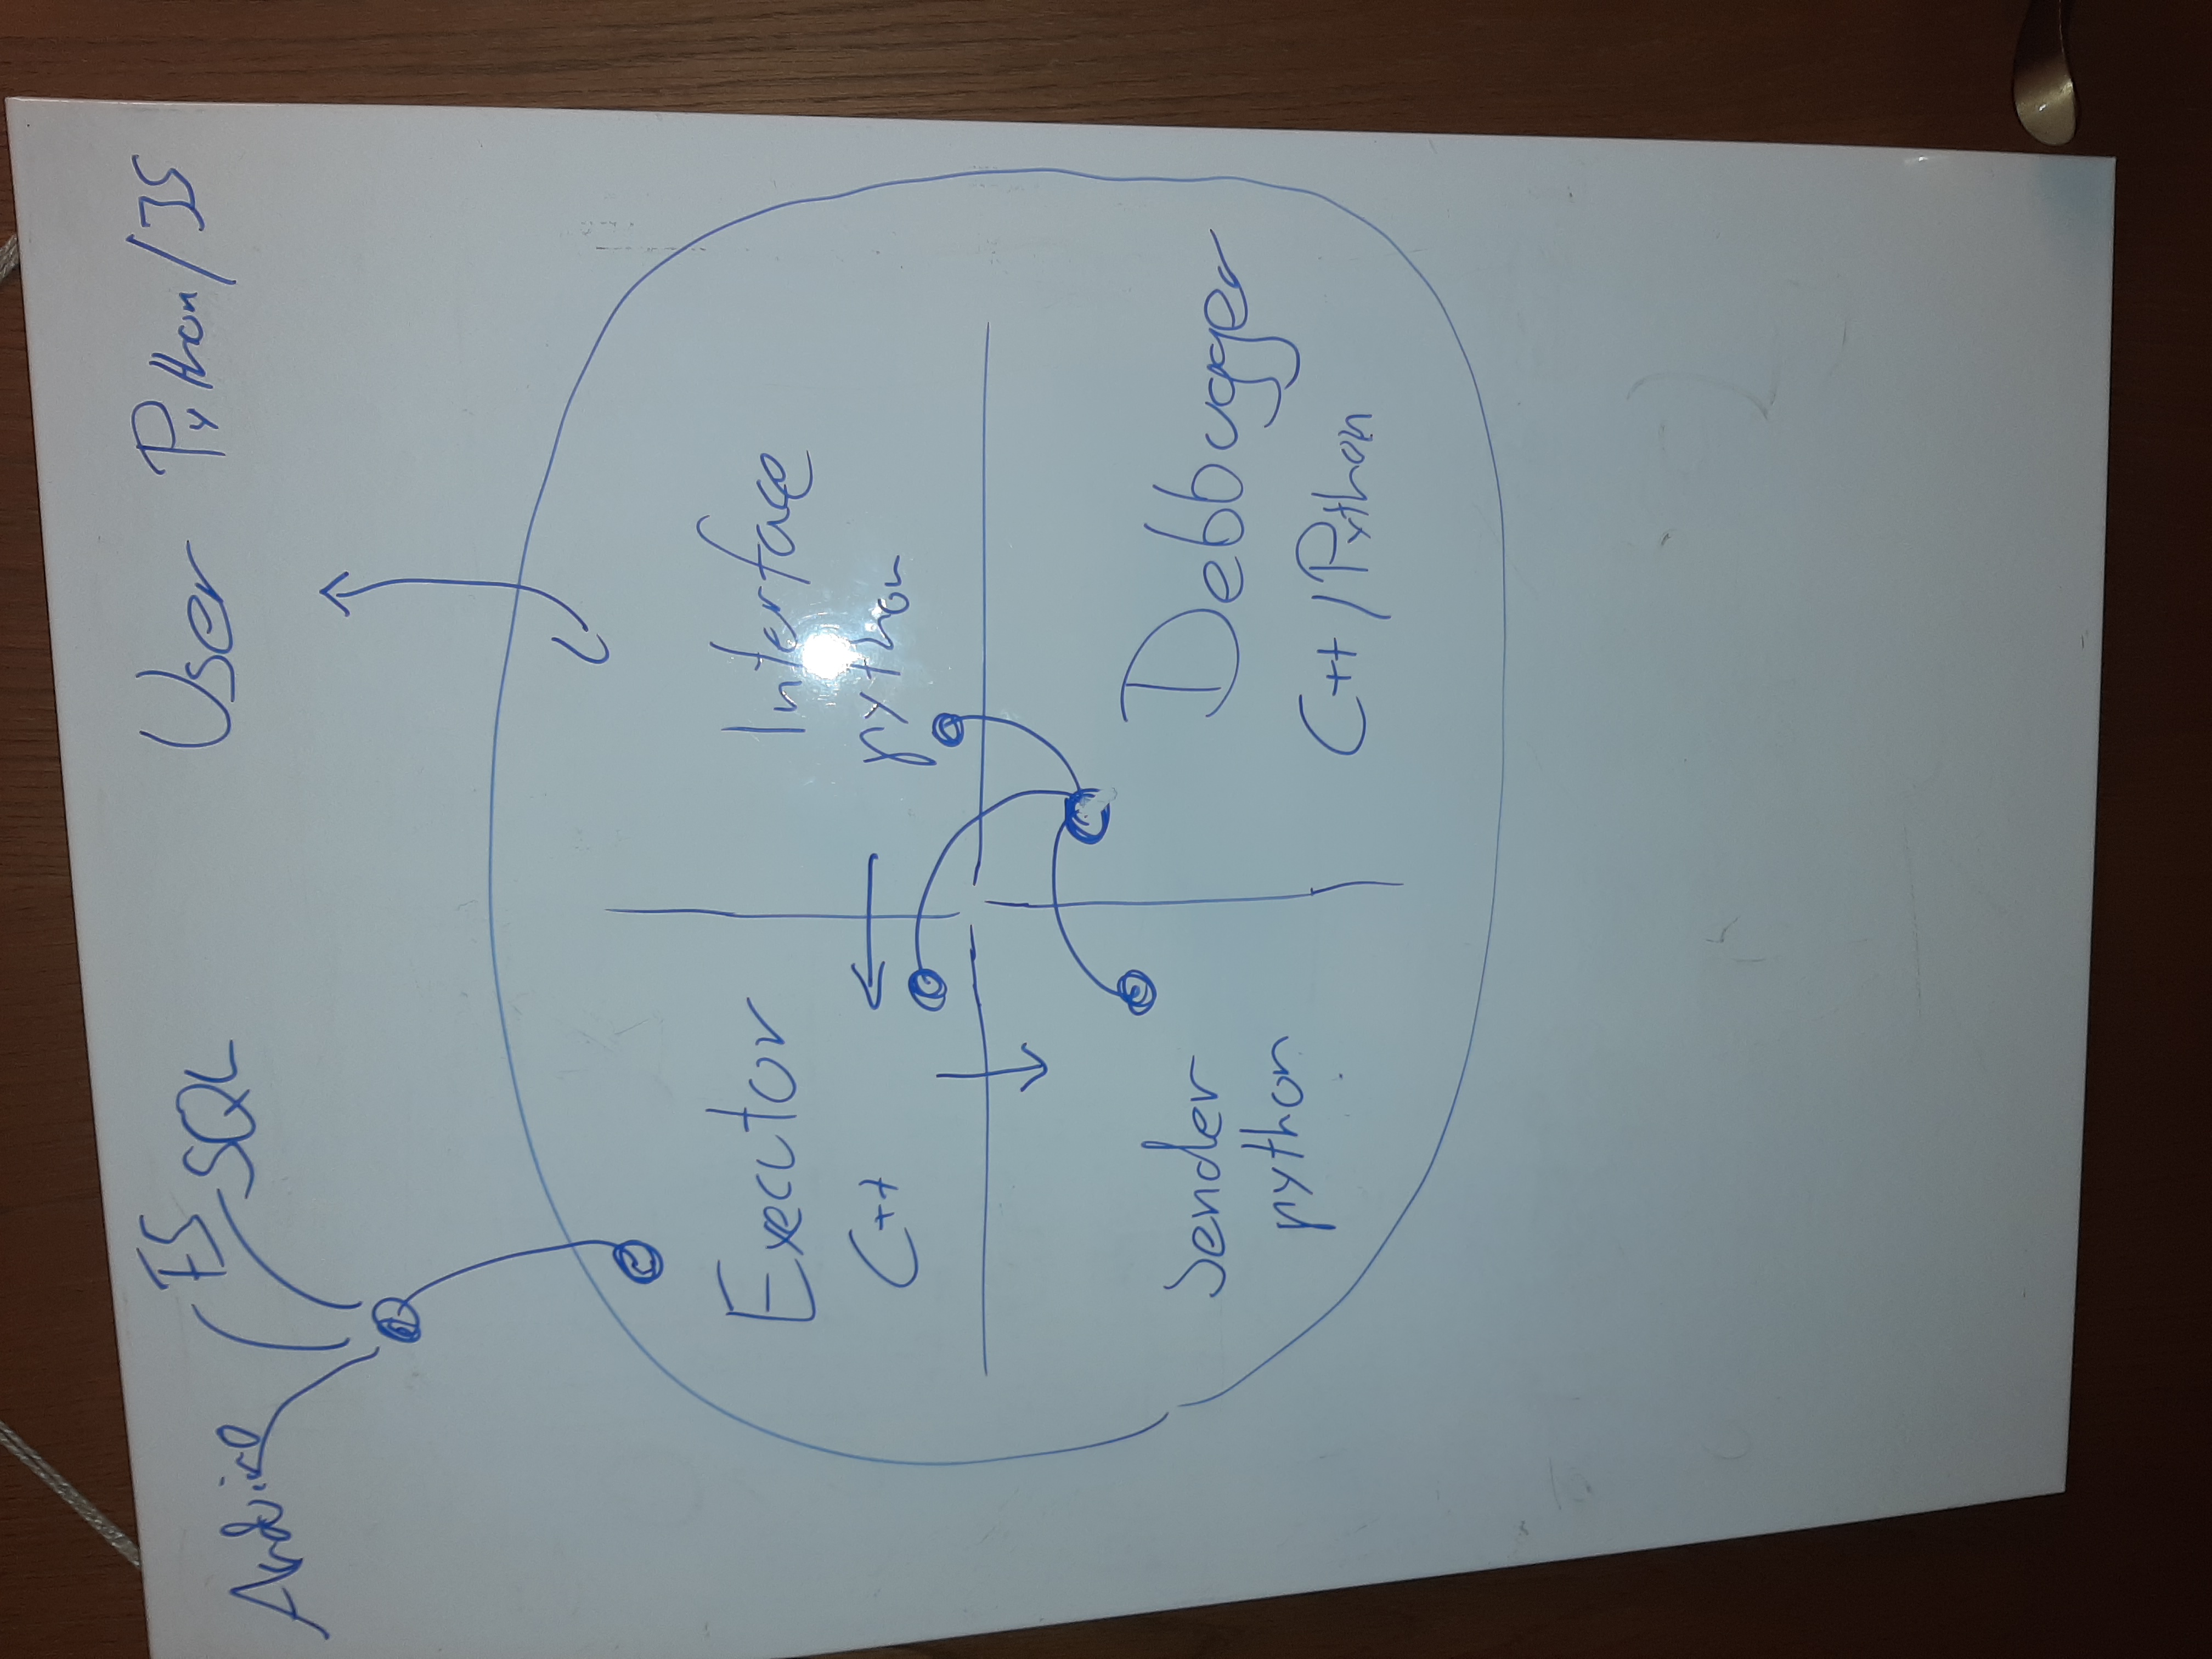 Arduino
FS
SQL
User Python/JS
Executor
C++
Interface
python
Sender
python
Debbugger
C++/Python